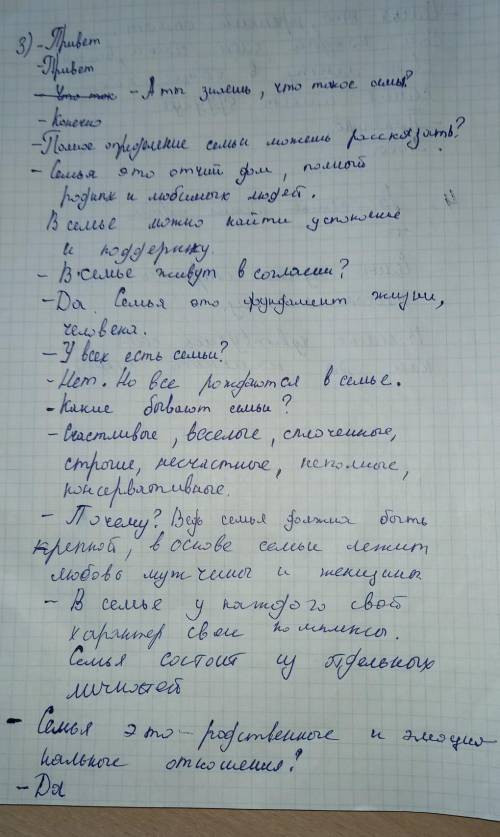 3) - Привет
- Привет
- Что так - А ты знаешь, что такое семья?
- Конечно
- Полное определение семьи можешь рассказать?
- Семья это отчий дом, полный
родных и любимых людей.
В семье можно найти успокоение
и поддержку.
- В семье живут в согласии?
- Да. Семья это фундамент жизни,
человека.
- У всех есть семьи?
- Нет. Но все рождаются в семье.
- Какие бывают семьи?
- Счастливые, веселые, сплоченные,
строгие, несчастные, неполные,
консервативные.
- Почему? Ведь семья должна быть
крепкой, в основе семьи лежит
любовь мужчины и женщины
- В семье у каждого свой
характер свои комплексы.
Семья состоит из отдельных
личностей
- Семья это - родственные и эмоцио
нальные отношения?
- Да